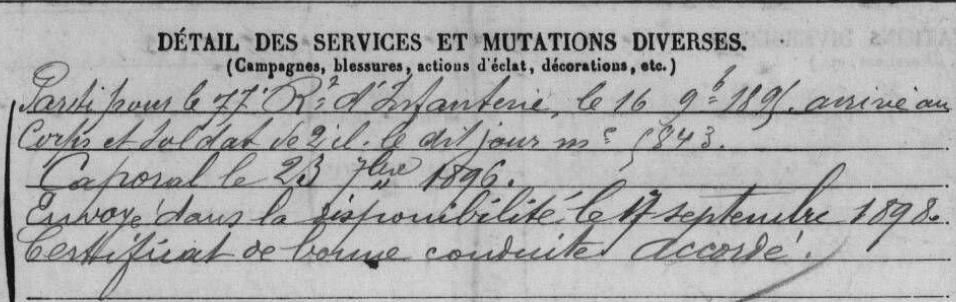 DÉTAIL DES SERVICES ET MUTATIONS DIVERSES.
(Campagnes, blessures, actions d'éclat, décorations, etc.)
Parti pour le 77e Rt d'Infanterie, le 16 9b 1895. arrivé au
Corps et soldat de 2e cl. le dit jour no 5843.
Caporal le 23 7bre 1896.
Envoyé dans la disponibilité le 17 septembre 1898.
Certificat de bonne conduite accordé.